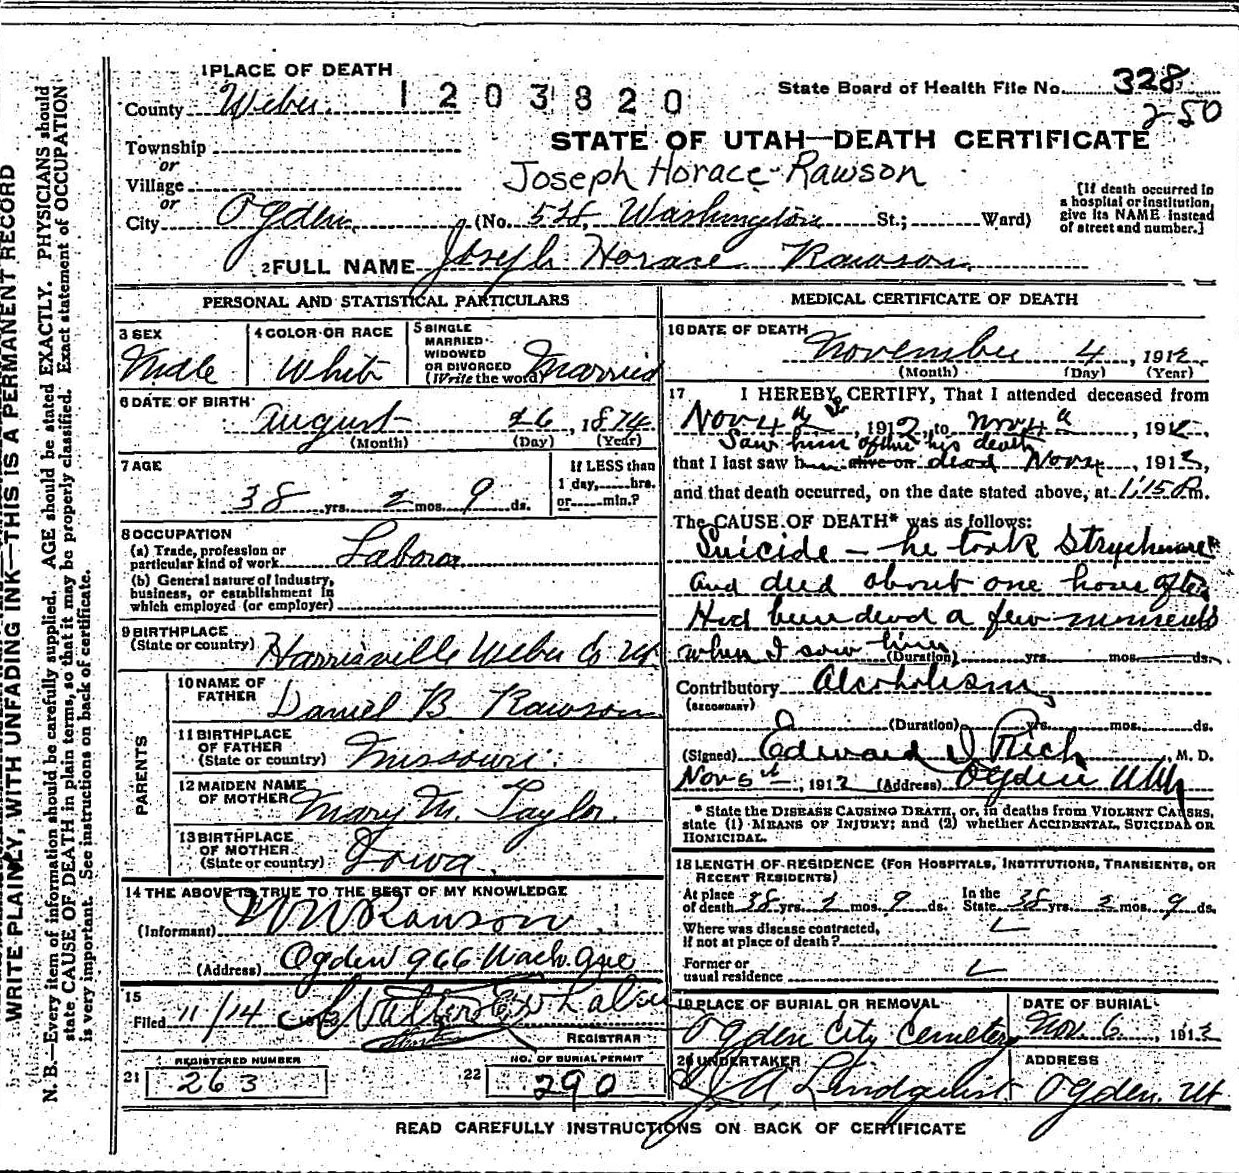 WRITE PLAINLY, WITH UNFADING INK—THIS IS A PERMANENT RECORD
N. B.—Every item of information should be carefully supplied. AGE should be stated EXACTLY. PHYSICIANS should
state CAUSE OF DEATH in plain terms, so that it may be properly classified. Exact statement of OCCUPATION
is very important. See instructions on back of certificate.
1 PLACE OF DEATH
County Weber
1203820
State Board of Health File No. 328
250
Township
or
Village
or
STATE OF UTAH—DEATH CERTIFICATE
Joseph Horace Rawson
City Ogden (No. Washington St.; Ward)
[If death occurred in
a hospital or institution,
give its NAME instead
of street and number.]
2 FULL NAME Joseph Horace Rawson
PERSONAL AND STATISTICAL PARTICULARS
3 SEX
Male
4 COLOR OR RACE
White
5 SINGLE
MARRIED
WIDOWED
OR DIVORCED
(Write the word) Married
6 DATE OF BIRTH
August 26, 1874
(Month) (Day) (Year)
7 AGE
38 yrs. 2 mos. 9 ds.
If LESS than
1 day, hrs.
or min.?
8 OCCUPATION
(a) Trade, profession or
particular kind of work Labora
(b) General nature of industry,
business, or establishment in
which employed (or employer)
9 BIRTHPLACE
(State or country) Harrisville Weber Co Ut
PARENTS
10 NAME OF
FATHER Daniel B. Rawson
11 BIRTHPLACE
OF FATHER
(State or country) Missouri
12 MAIDEN NAME
OF MOTHER Mary M. Taylor
13 BIRTHPLACE
OF MOTHER
(State or country) Iowa
14 THE ABOVE IS TRUE TO THE BEST OF MY KNOWLEDGE
(Informant) W W Rawson
(Address) Ogden 966 Wash Ave
15
Filed 11/14
REGISTRAR
21 REGISTERED NUMBER
263
22 NO. OF BURIAL PERMIT
290
MEDICAL CERTIFICATE OF DEATH
16 DATE OF DEATH
November 4, 1912
(Month) (Day) (Year)
17 I HEREBY CERTIFY, That I attended deceased from
Nov 4th, 1912, to Nov 4th, 1912,
Saw him after his death
that I last saw him alive on dead Nov 4, 1912,
and that death occurred, on the date stated above, at 1:15 P.m.
The CAUSE OF DEATH* was as follows:
Suicide — he took Strychnine
and died about one hour after
Had been dead a few minutes
when I saw him
(Duration) yrs. mos. ds.
Contributory Alcoholism
(SECONDARY)
(Duration) yrs. mos. ds.
(Signed) Edward I Rich, M. D.
Nov 5th, 1912 (Address) Ogden Utah
* State the DISEASE CAUSING DEATH, or, in deaths from VIOLENT CAUSES,
state (1) MEANS OF INJURY; and (2) whether ACCIDENTAL, SUICIDAL OR
HOMICIDAL.
18 LENGTH OF RESIDENCE (FOR HOSPITALS, INSTITUTIONS, TRANSIENTS, OR
RECENT RESIDENTS)
At place
of death 38 yrs. 2 mos. 9 ds.
In the
State 38 yrs. 2 mos. 9 ds.
Where was disease contracted,
if not at place of death?
Former or
usual residence
19 PLACE OF BURIAL OR REMOVAL
Ogden City Cemetery
DATE OF BURIAL
Nov. 6, 1912
20 UNDERTAKER
J A Lindquist
ADDRESS
Ogden Ut
READ CAREFULLY INSTRUCTIONS ON BACK OF CERTIFICATE